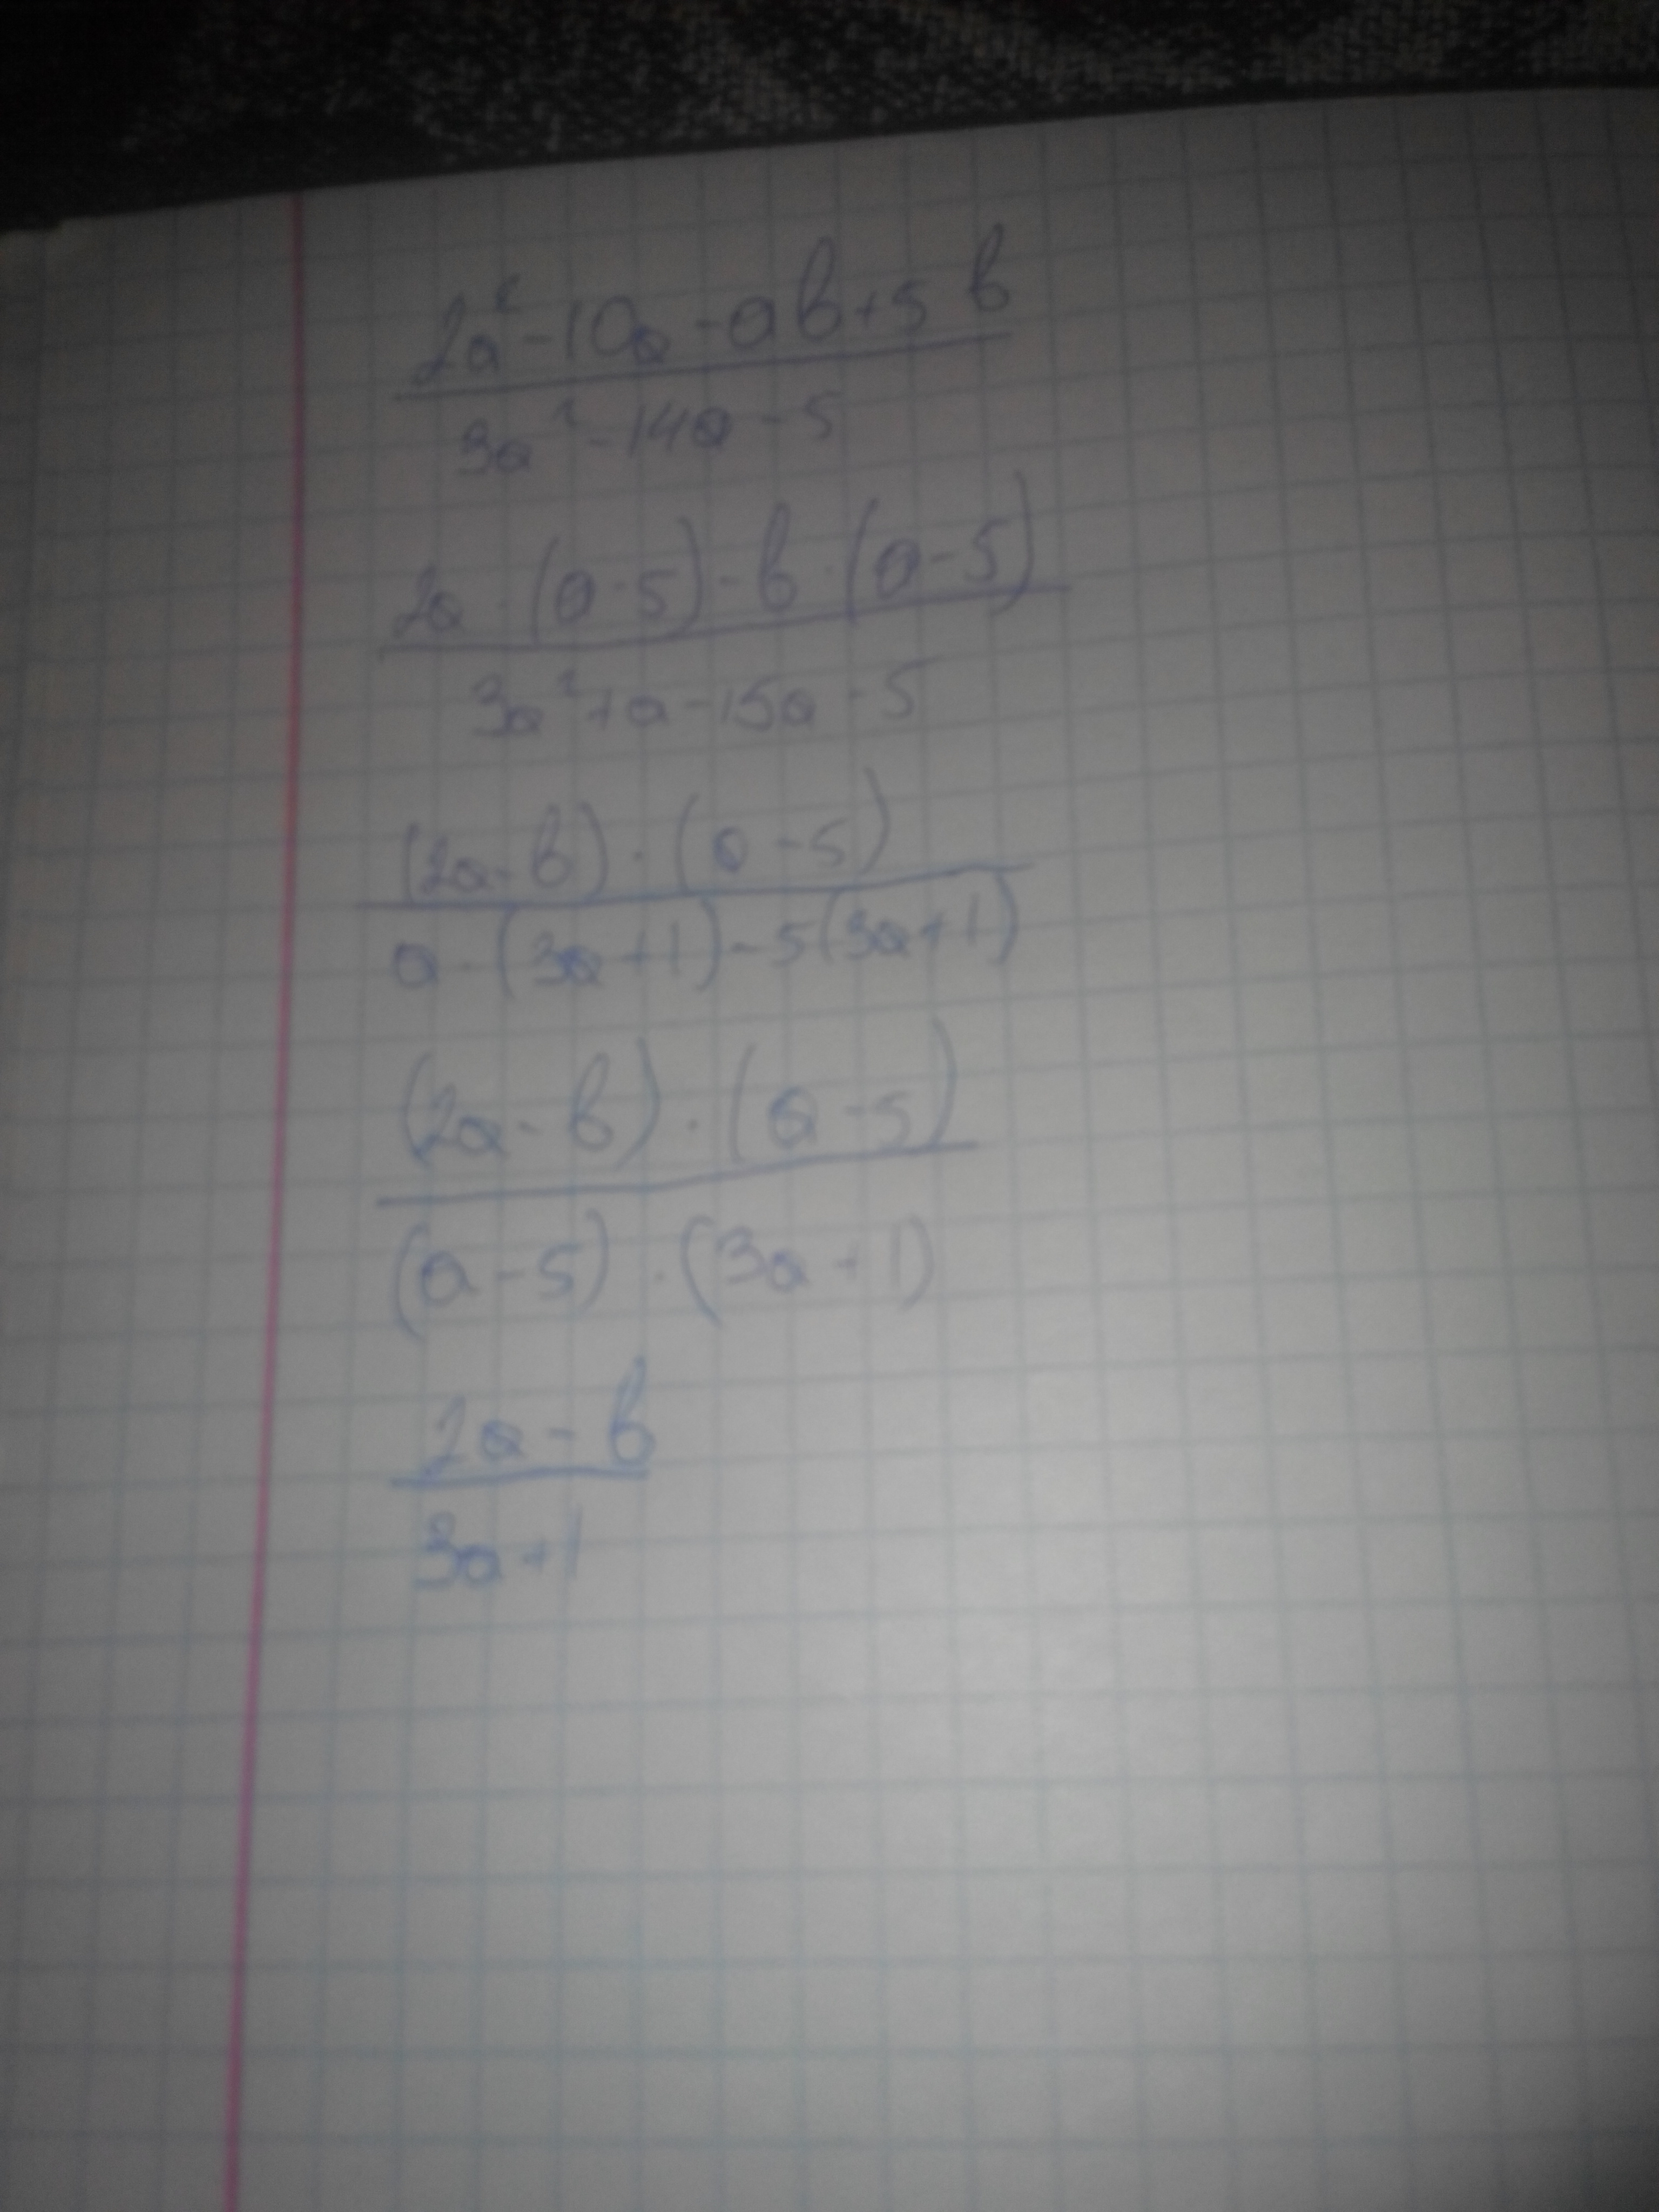 2a² - 10a - ab + 5b
3a² - 14a - 5
2a · (a - 5) - b · (a - 5)
3a² + a - 15a - 5
(2a - b) · (a - 5)
a · (3a + 1) - 5(3a + 1)
(2a - b) · (a - 5)
(a - 5) · (3a + 1)
2a - b
3a + 1